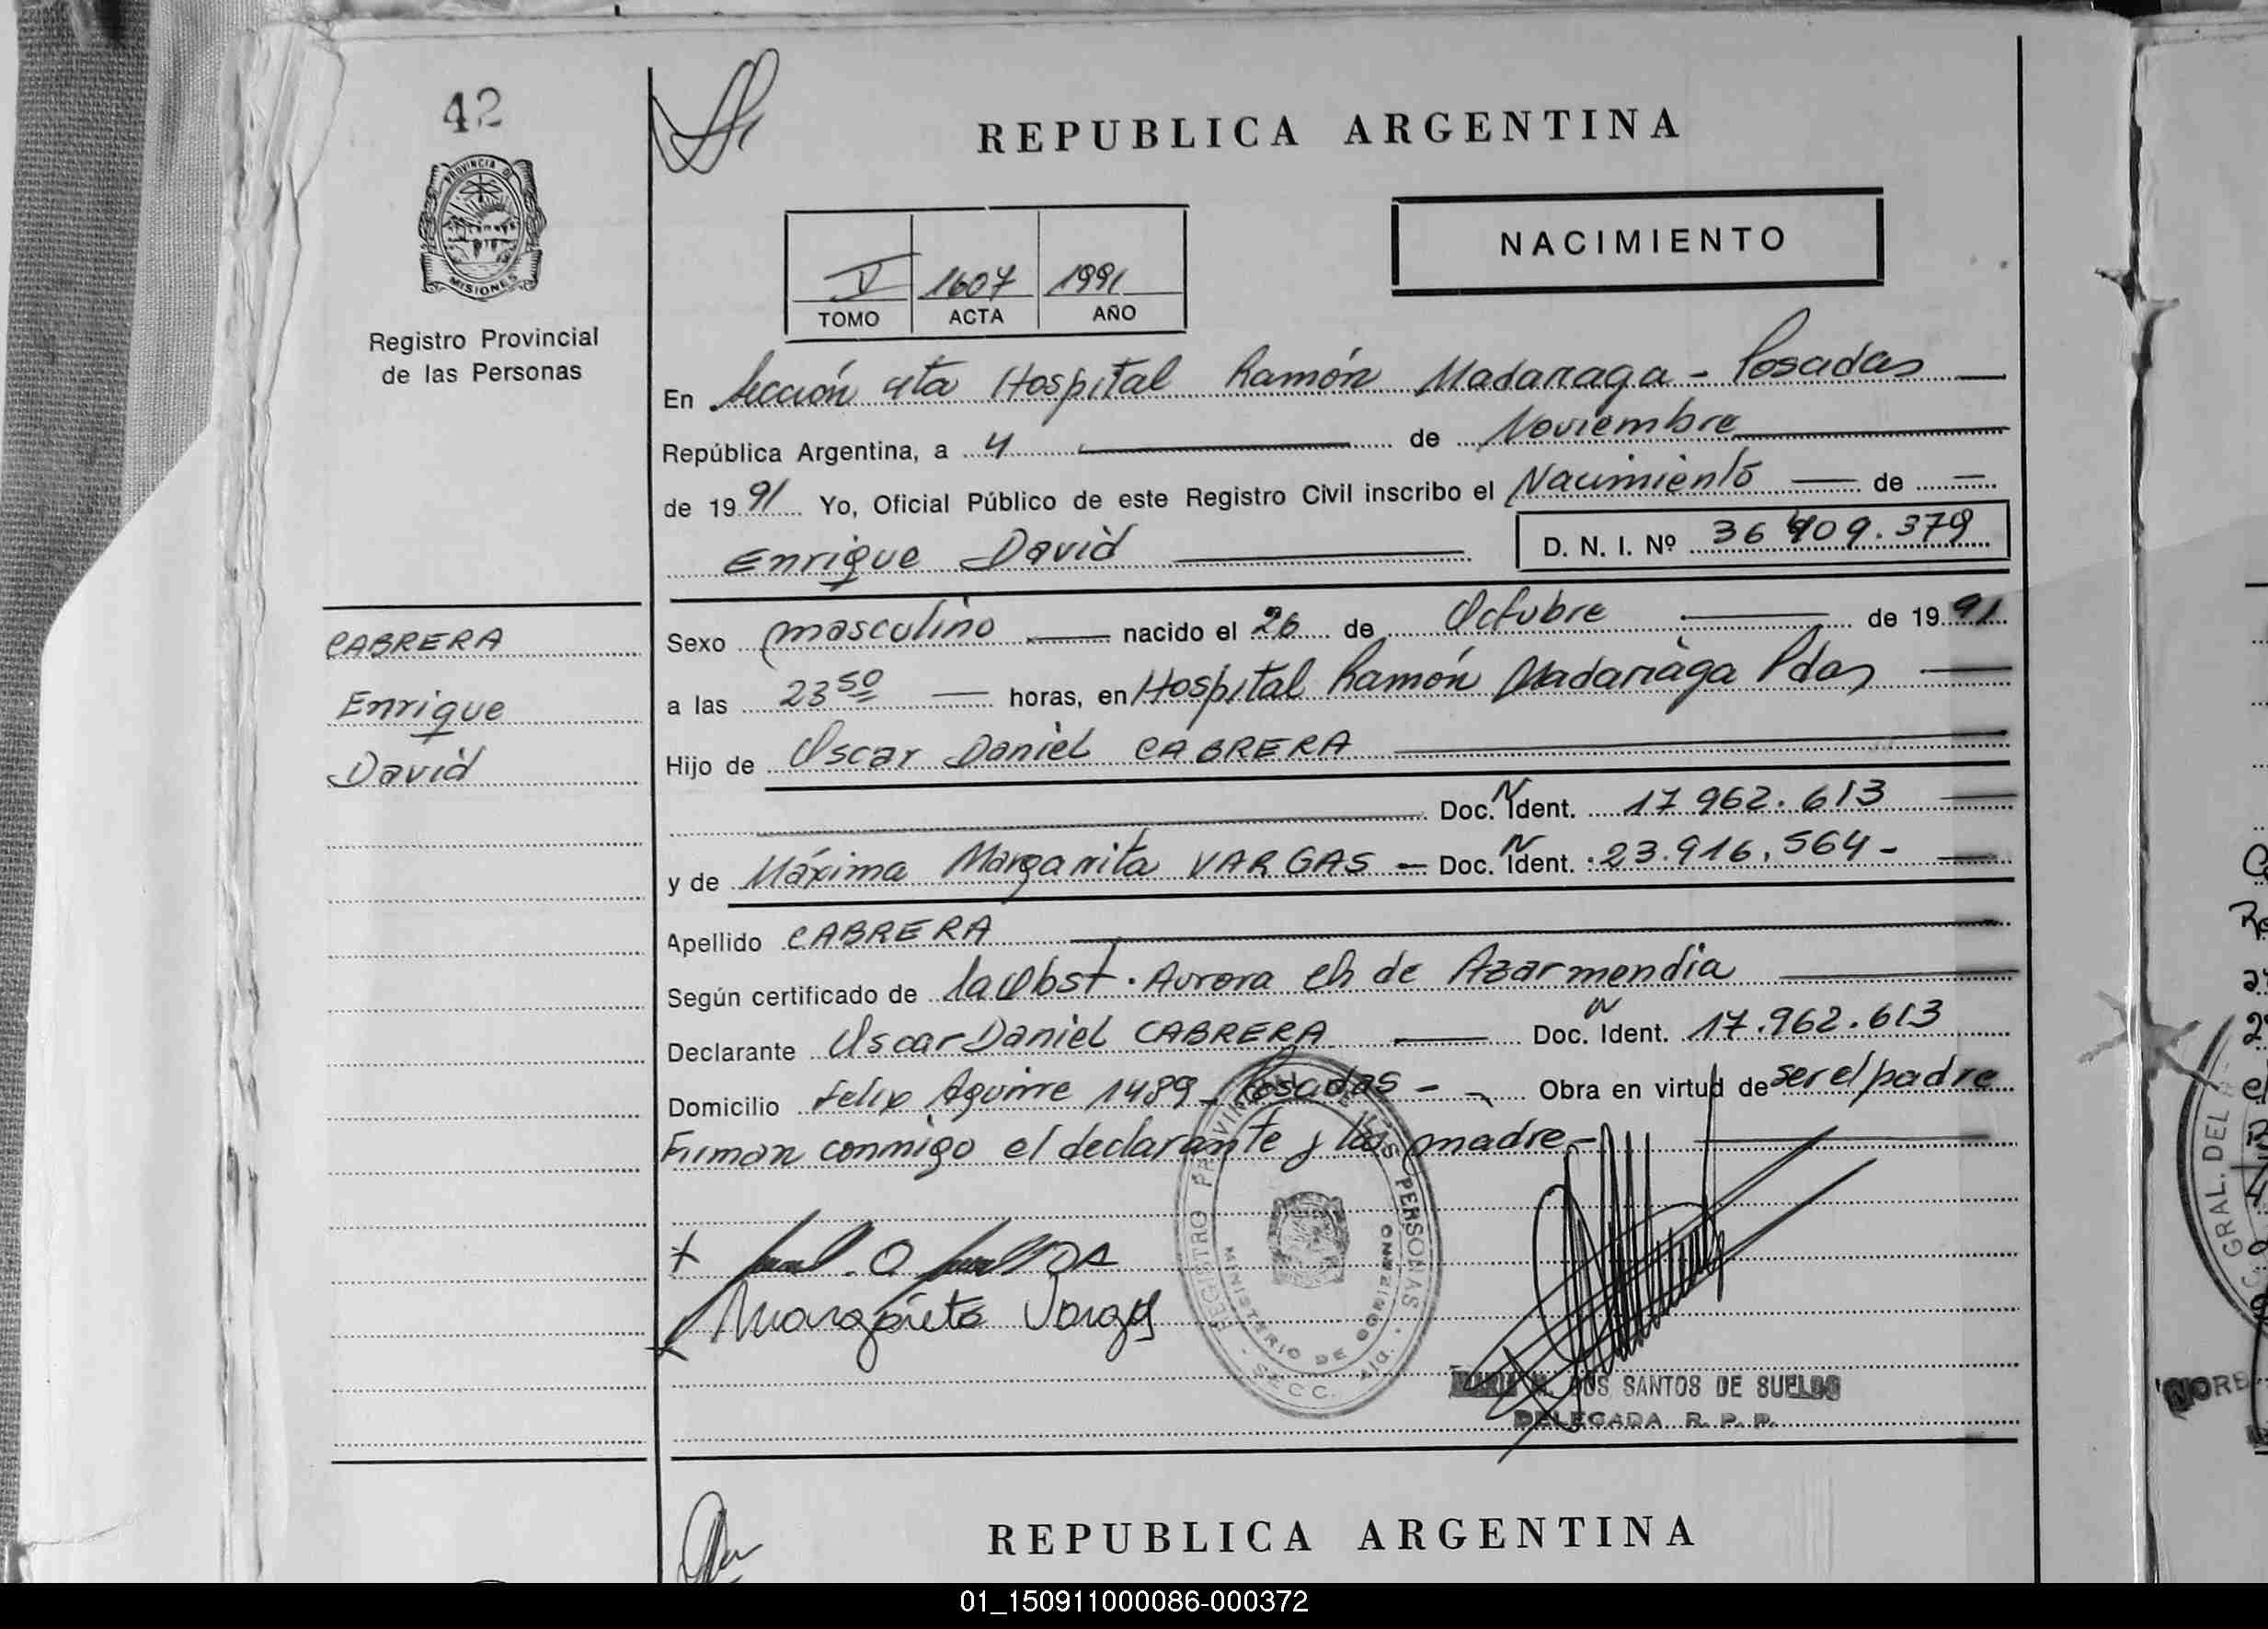 42
PROVINCIA DE
MISIONES
Registro Provincial
de las Personas
CABRERA
Enrique
David
REPUBLICA ARGENTINA
V 1607 1991
TOMO ACTA AÑO
NACIMIENTO
En Sección 4ta Hospital Ramón Madariaga - Posadas
República Argentina, a 4 de Noviembre
de 1991 Yo, Oficial Público de este Registro Civil inscribo el Nacimiento de
Enrique David D. N. I. Nº 36 409.379
Sexo masculino nacido el 26 de Octubre de 1991
a las 23 50 horas, en Hospital Ramón Madariaga Pdas
Hijo de Oscar Daniel CABRERA
Doc. N Ident. 17 962.613
y de Máxima Margarita VARGAS - Doc. N Ident. 23.916.564-
Apellido CABRERA
Según certificado de la Obst. Aurora Ch de Azarmendia
Declarante Oscar Daniel CABRERA Doc. N Ident. 17.962.613
Domicilio Felix Aguirre 1489 - Posadas - Obra en virtud de ser el padre
Firman conmigo el declarante y la madre-
Margarita Vargas
REGISTRO PROVINCIAL DE LAS PERSONAS
MINISTERIO DE GOBIERNO
SECC.
DOS SANTOS DE SUELDO
DELEGADA R. P. P.
REPUBLICA ARGENTINA
GRAL. DEL
01_150911000086-000372